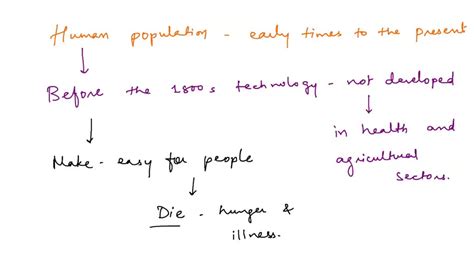 Human population - early times to the present
Before the 1800s technology - not developed
in health and
agricultural
sectors.
Make - easy for people
Die - hunger &
illness.